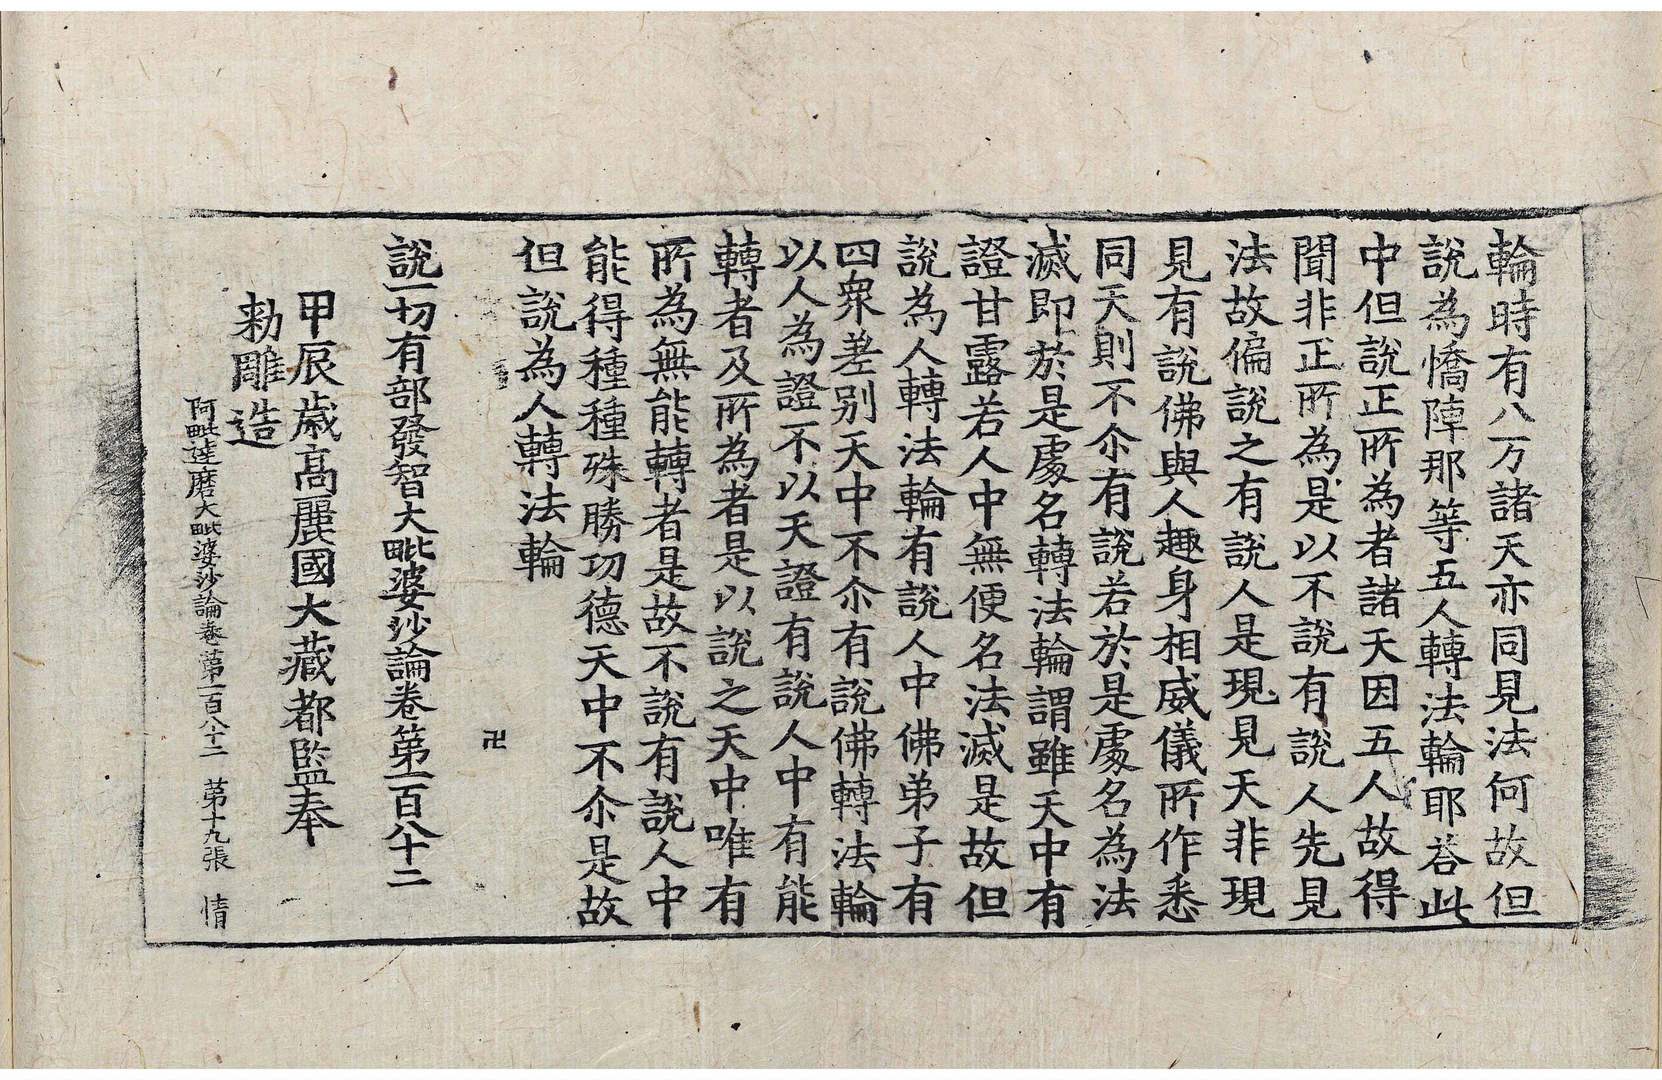 輪時有八万諸天亦同見法何故但
說為憍陣那等五人轉法輪耶荅此
中但說正所為者諸天因五人故得
聞非正所為是以不說有說人先見
法故偏說之有說人是現見天非現
見有說佛與人趣身相威儀所作悉
同天則不尒有說若於是處名為法
滅即於是處名轉法輪謂雖天中有
證甘露若人中無便名法滅是故但
說為人轉法輪有說人中佛弟子有
四衆差別天中不尒有說佛轉法輪
以人為證不以天證有說人中有能
轉者及所為者是以說之天中唯有
所為無能轉者是故不說有說人中
能得種種殊勝功德天中不尒是故
但說為人轉法輪
卍
說一切有部發智大毗婆沙論卷第一百八十二
甲辰歲高麗國大藏都監奉
勑雕造
阿毗達磨大毗婆沙論卷第一百八十二 第十九張 情